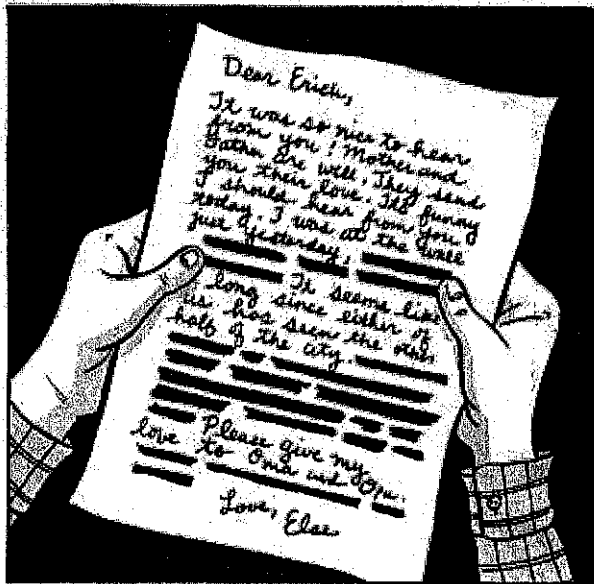 Dear Erich,
It was so nice to hear
from you! Mother and
Father are well, They send
you their love. It's funny
I should hear from you
today. I was at the Wall
just yesterday,
It seems like
long since either of
us has seen the other
half of the city.
Please give my
love to Oma and Opa.
Love, Else